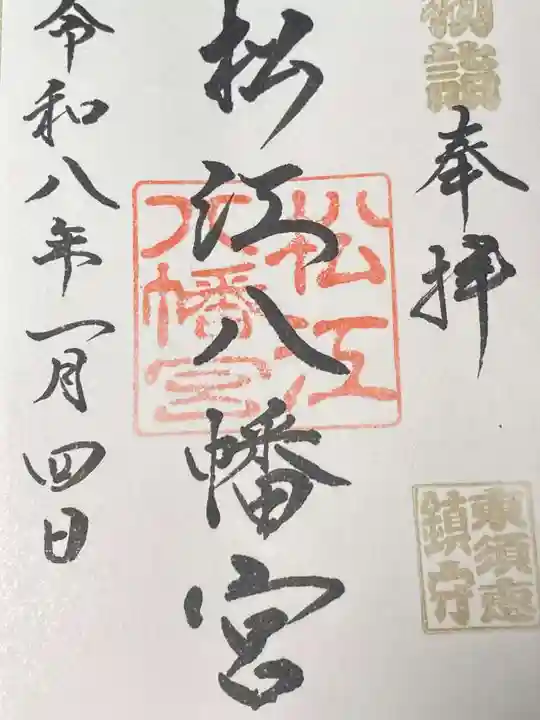 初詣
奉拝
東須恵
鎮守
松江八幡宮
松江
八幡宮
令和八年一月四日